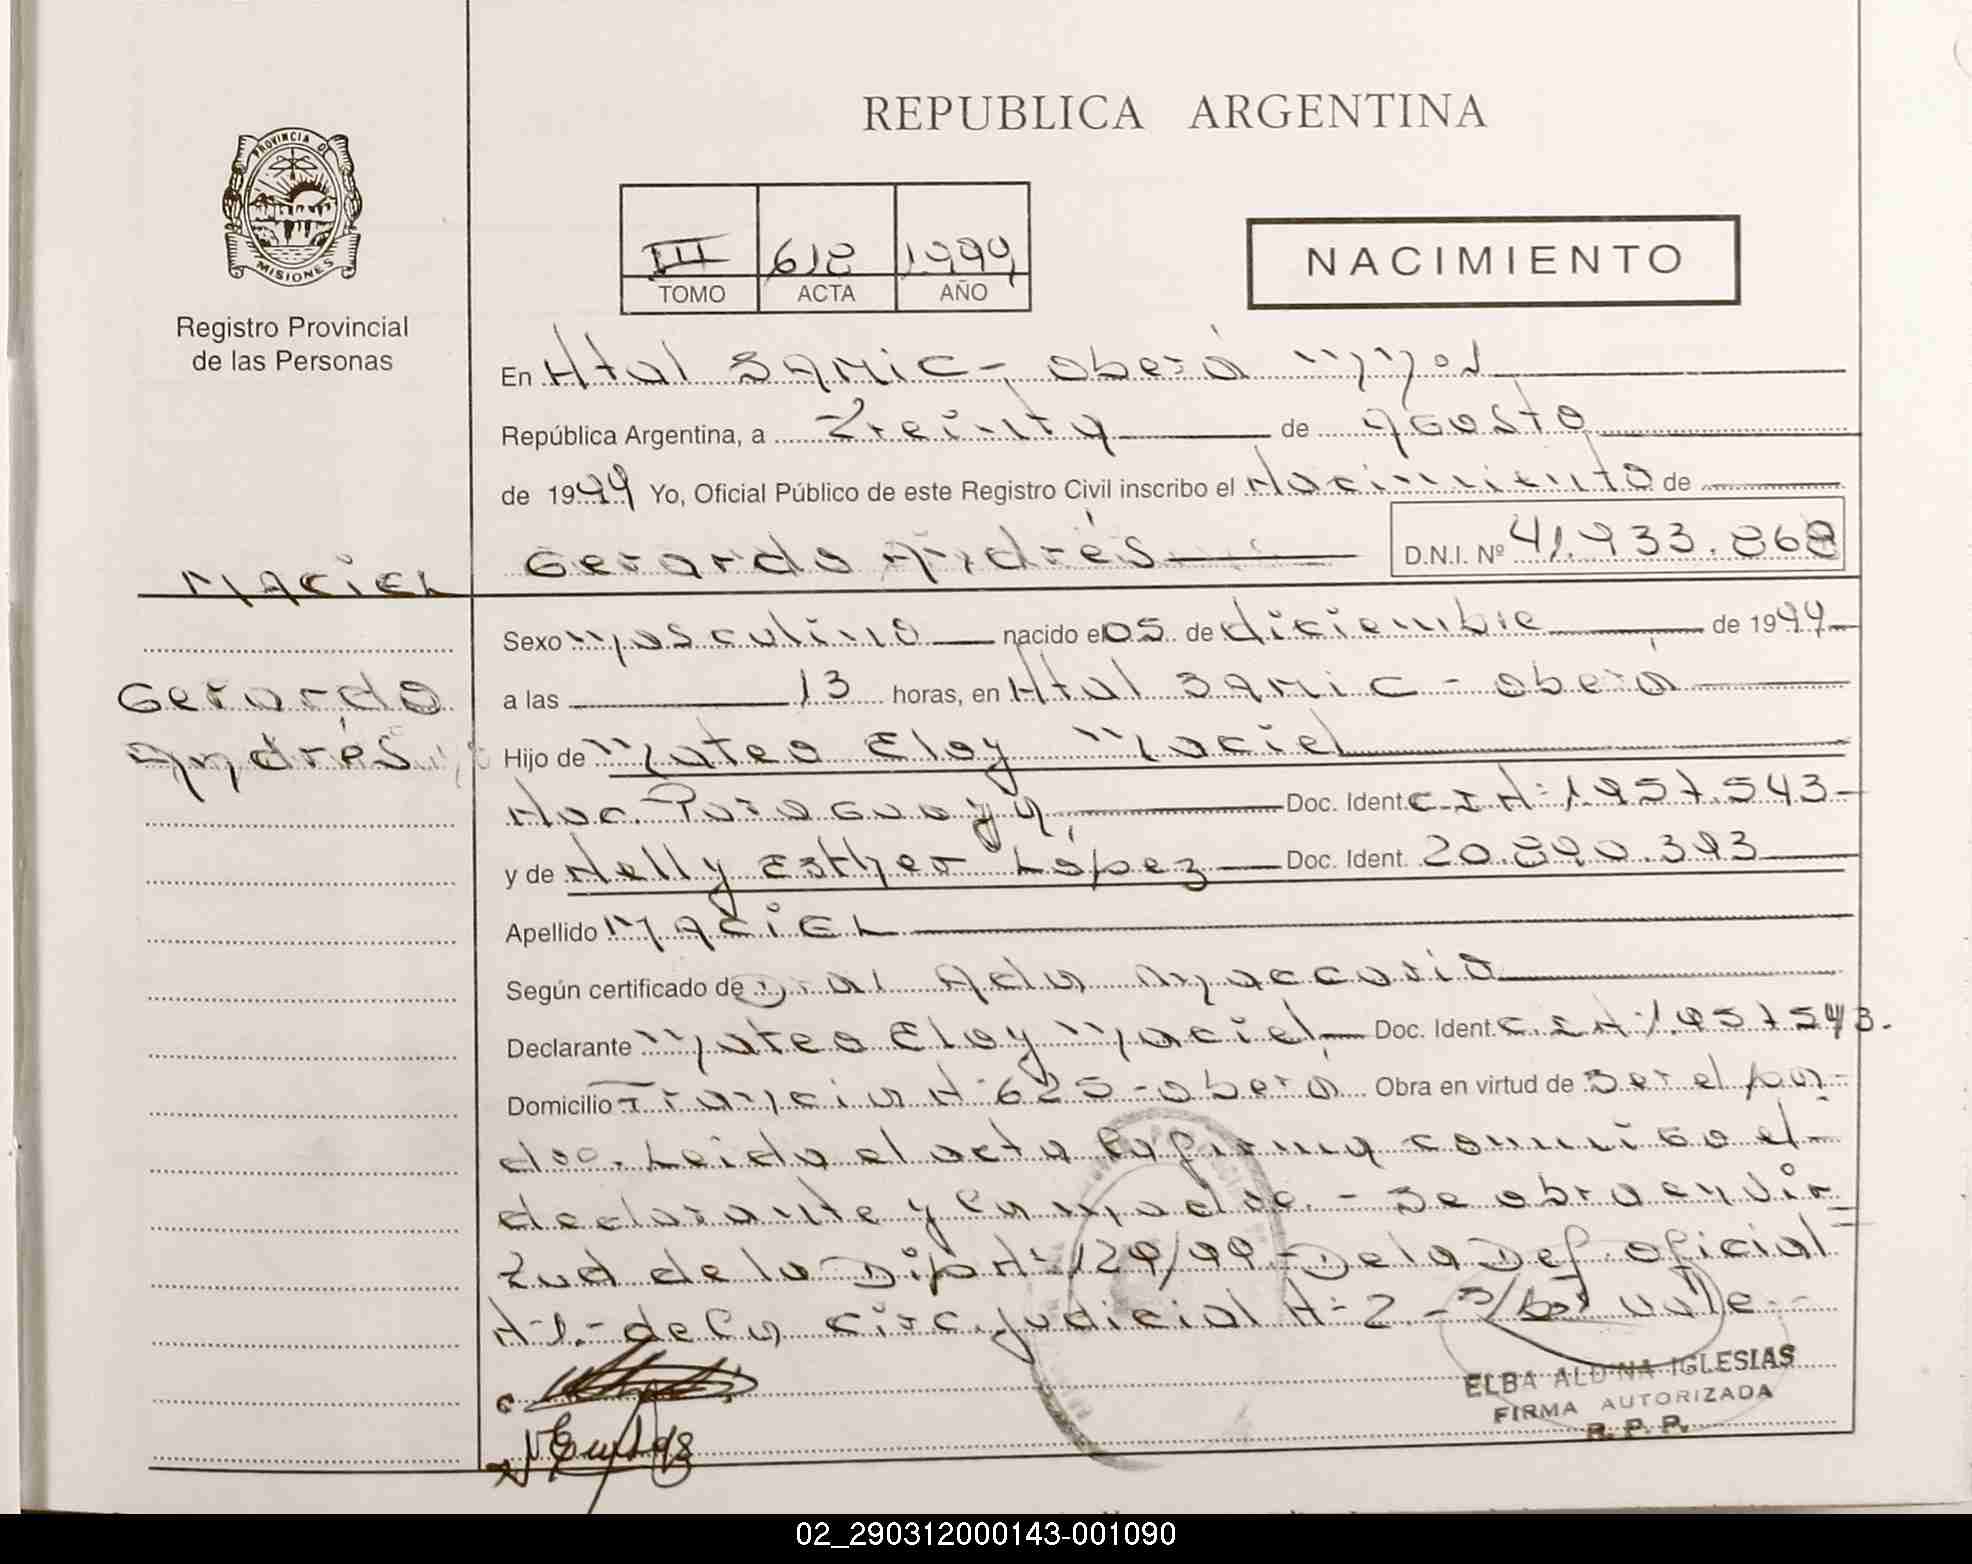 REPUBLICA ARGENTINA
PROVINCIA DE
MISIONES
Registro Provincial
de las Personas
III 618 1999
TOMO ACTA AÑO
NACIMIENTO
En Htal SAMIC - Oberá Mnes
República Argentina, a Treinta de Agosto
de 1999 Yo, Oficial Público de este Registro Civil inscribo el Nacimiento de
Gerardo Andrés D.N.I. Nº 41.933.868
MACIEL
Gerardo
Andrés
Sexo Masculino nacido el 05 de diciembre de 1994
a las 13 horas, en Htal SAMIC - Oberá
Hijo de Mateo Eloy Maciel
Nac. Paraguaya, Doc. Ident. C.I.Nº 1.957.543-
y de Nelly Esther López Doc. Ident. 20.890.393
Apellido MACIEL
Según certificado de Dra. Ada Maccario
Declarante Mateo Eloy Maciel, Doc. Ident. C.I.Nº 1.957.543.
Domicilio Francia Nº 625 - Oberá Obra en virtud de Ser el pa-
dre. Leida el acta la firma conmigo el
declarante y la madre. - Se obra en vir=
tud de la Disp Nº 129/99 - De la Def. oficial
Nº 1.- de la Circ. Judicial Nº 2.- vale.-
ELBA ALDINA IGLESIAS
FIRMA AUTORIZADA
R. P. P.
02_290312000143-001090